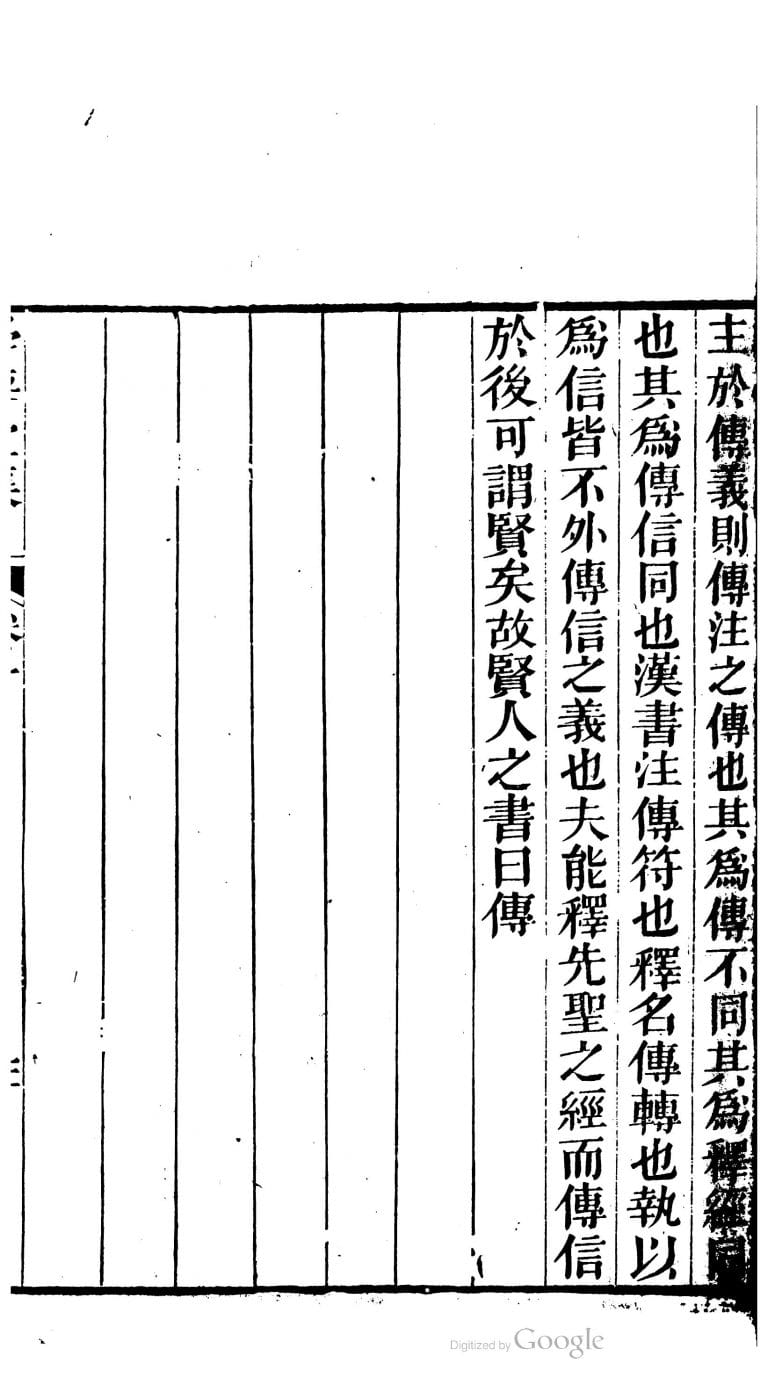 主於傳義則傳注之傳也其爲傳不同其爲釋經同
也其爲傳信同也漢書注傳符也釋名傳轉也執以
爲信皆不外傳信之義也夫能釋先聖之經而傳信
於後可謂賢矣故賢人之書曰傳
Digitized by Google